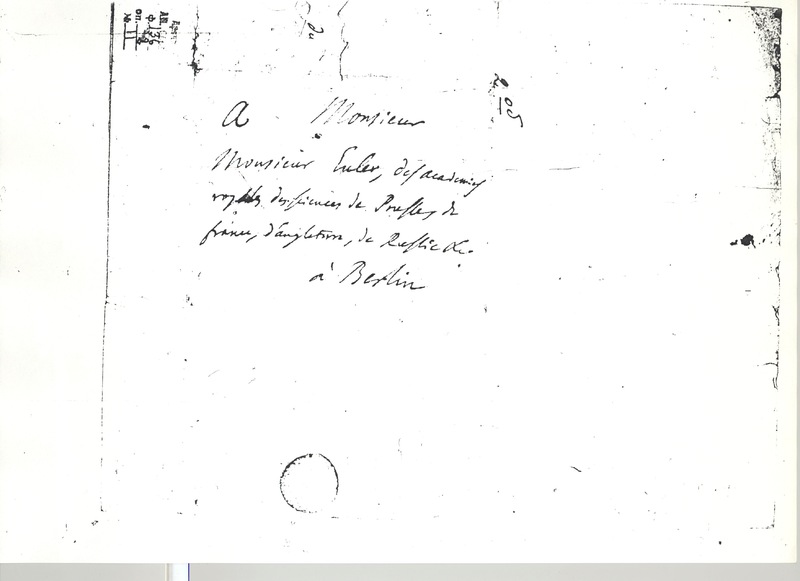 A Monsieur
Monsieur Euler, des academies
royales des sciences de Prusse, de
france, d'angleterre, de Russie &c.
à Berlin